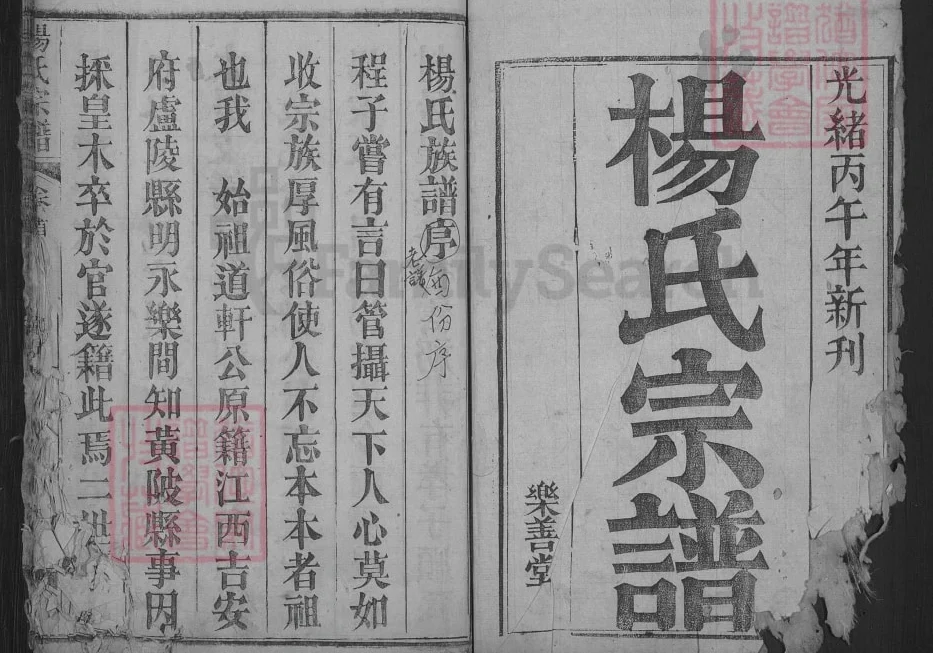 光緒丙午年新刊
楊氏宗譜
樂善堂
楊氏族譜序
老譜
兩份序
程子嘗有言曰管攝天下人心莫如
收宗族厚風俗使人不忘本本者祖
也我 始祖道軒公原籍江西吉安
府盧陵縣明永樂間知黃陂縣事因
採皇木卒於官遂籍此焉二世
楊氏宗譜 卷首
FamilySearch